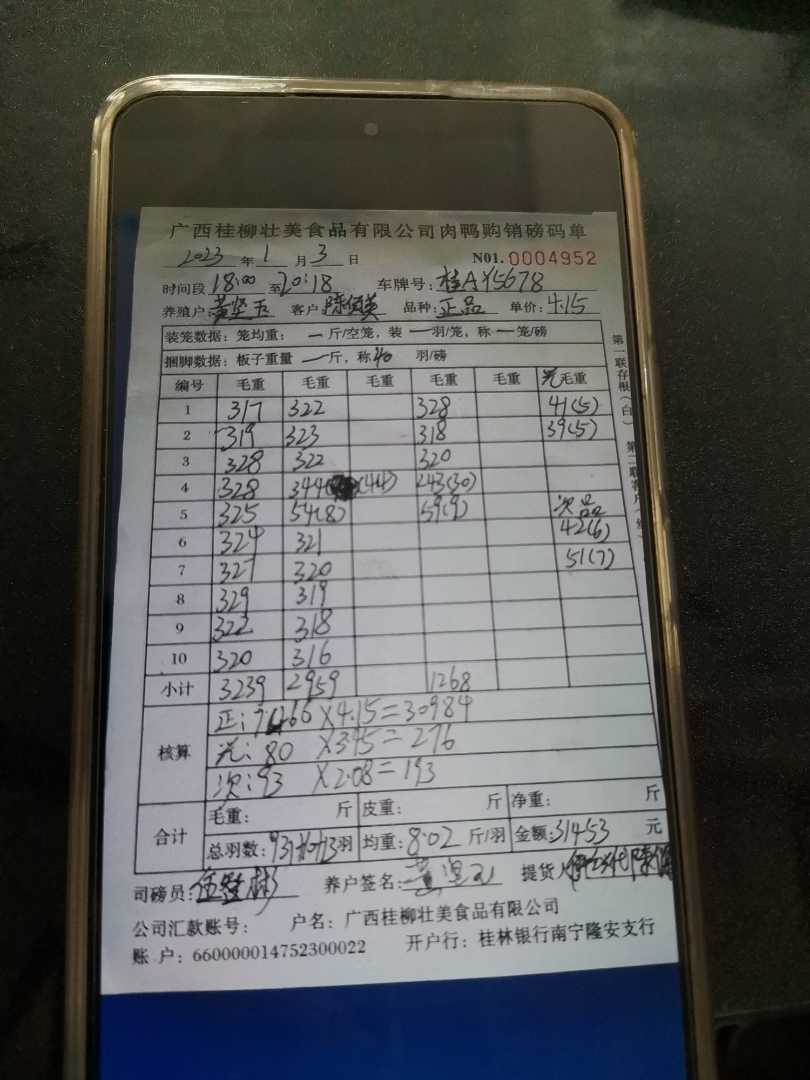 广西桂柳壮美食品有限公司肉鸭购销磅码单
2023 年 1 月 3 日 N01. 0004952
时间段 18:00 至 20:18 车牌号: 桂AY5678
养殖户: 黄坚玉 客户: 陈英 品种: 正品 单价: 4.15
装笼数据: 笼均重: 一 斤/空笼, 装 一 羽/笼, 称 一 笼/磅
捆脚数据: 板子重量 一 斤, 称 40 羽/磅
编号 毛重 毛重 毛重 毛重 毛重 光毛重
1 317 322 328 41(5)
2 319 323 318 39(5)
3 328 322 320
4 328 344 (44) 243(30)
5 325 54(8) 59(9) 次品
6 324 321 42(6)
7 327 320 51(7)
8 329 319
9 322 318
10 320 316
小计 3239 2959 1268
核算
正: 7466 X4.15=30984
光: 80 X3.45=276
次: 93 X2.08=193
合计
毛重: 斤 皮重: 斤 净重: 斤
总羽数: 931+10+13羽 均重: 8.02 斤/羽 金额: 31453 元
司磅员: 养户签名: 黄坚玉 提货人
公司汇款账号: 户名: 广西桂柳壮美食品有限公司
账 户: 660000014752300022 开户行: 桂林银行南宁隆安支行
第一联存根(白) 第二联客户(